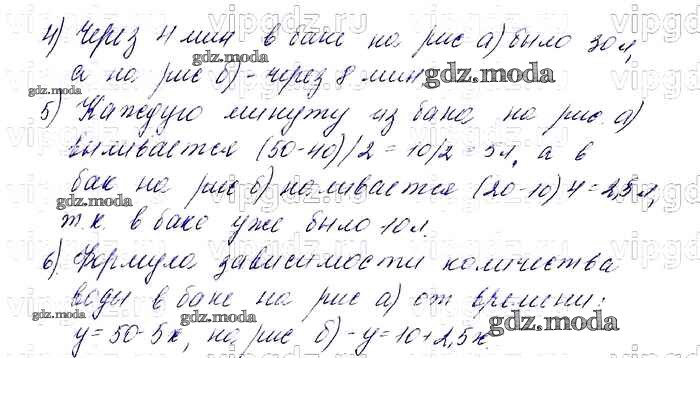 4) Через 4 мин в баке на рис а) было 30 л,
а на рис б) - через 8 мин
5) Каждую минуту из бака на рис. а)
выливается (50-40)/2 = 10/2 = 5 л, а в
бак на рис б) наливается (20-10) 4 = 2,5 л,
т.к. в баке уже было 10 л.
6) Формула зависимости количества
воды в баке на рис а) от времени:
y = 50 - 5x, на рис б) - y = 10 + 2,5x
gdz.moda
gdz.moda
gdz.moda
gdz.moda
gdz.moda
gdz.moda
gdz.moda
vipgdz.ru